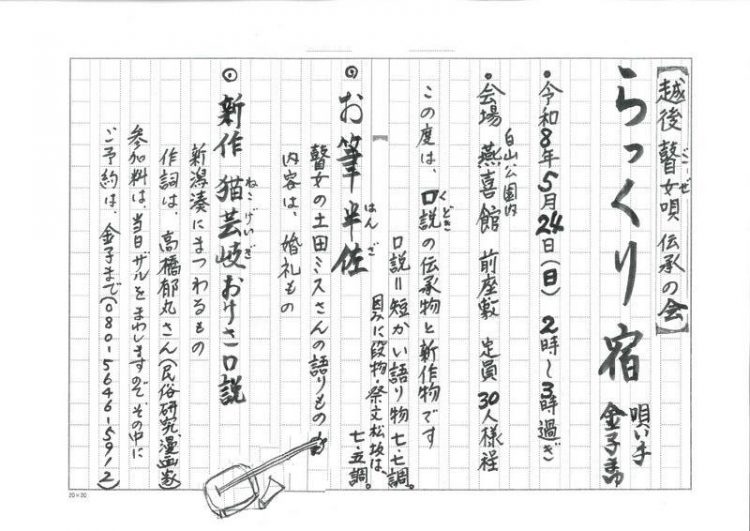 【越後 瞽女唄 伝承の会】
ごぜ
らっくり宿 唄い手
• 令和8年5月24日(日) 2時〜3時過ぎ
白山公園内
• 会場 燕喜館 前座敷 定員30人様程
この度は、口説の伝承物と新作物です
くどき
口説=短かい語り物 七・七調。
因みに段物・祭文松坂は、
七・五調。
◎ お筆半佐
はんざ
瞽女の土田ミスさんの語りもの
内容は、婚礼もの
◎ 新作 猫芸岐おけさ口説
ねこげいぎ
新潟湊にまつわるもの
作詞は、高橋郁丸さん(民俗研究、漫画家)
参加料は、当日ザルをまわしますのでその中に
ご予約は、金子まで(080-5646-5912)
20×20